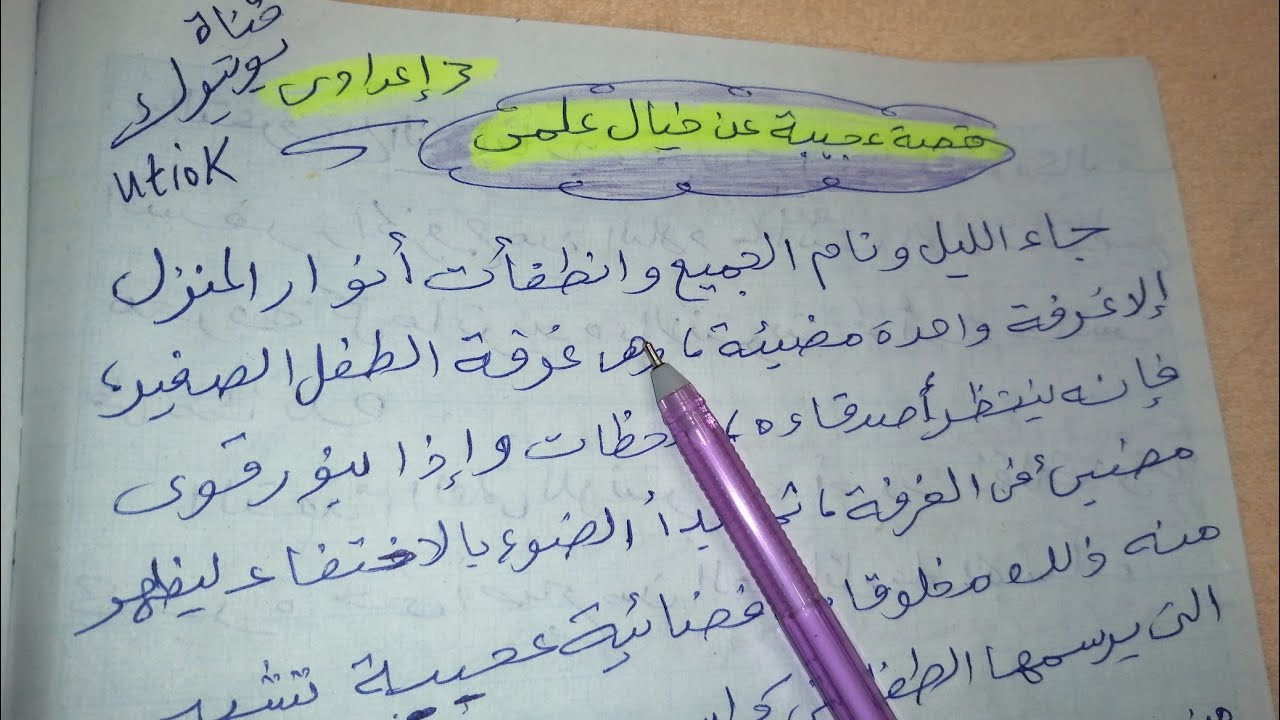 قناة
يوتيوك
utioK
3 إعدادى
قصة عجيبة عن خيال علمى
جاء الليل ونام الجميع وانطفأت أنوار المنزل
إلا غرفة واحدة مضيئة، وهى غرفة الطفل الصغير،
فإنه ينتظر أصدقاءه، لحظات وإذا بنور قوى
مضيئ فى الغرفة، ثم يبدأ الضوء بالاختفاء ليظهر
منه ذلك مخلوقات فضائية عجيبة تشبه
التى يرسمها الطفل فى